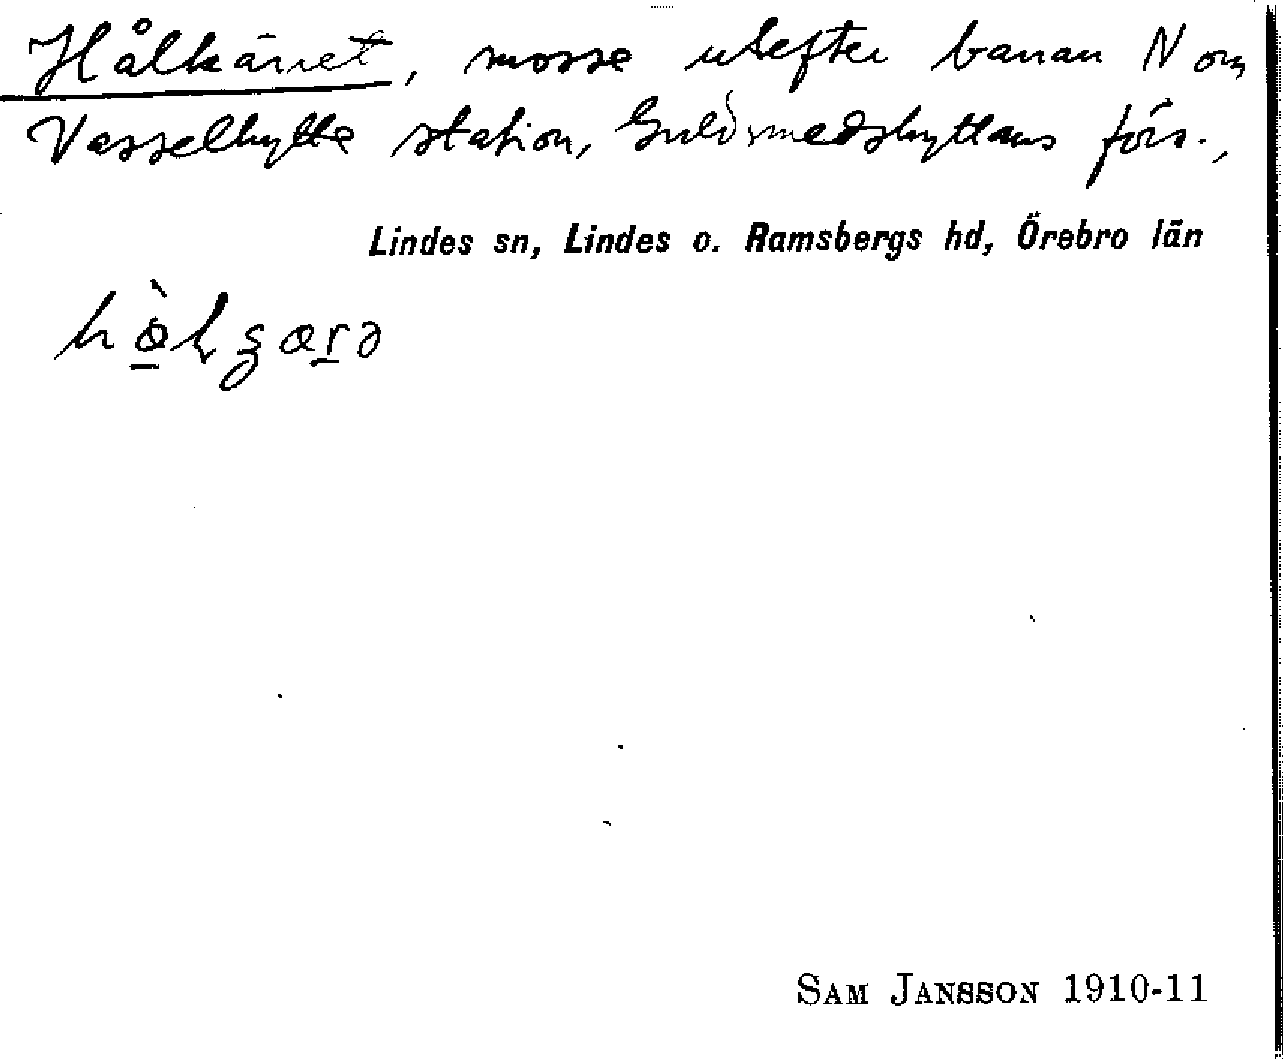 Hålkärret, mosse utefter banan N om
Vasselhytte station, Guldsmedshyttans förs.,
Lindes sn, Lindes o. Ramsbergs hd, Örebro län
SAM JANSSON 1910-11